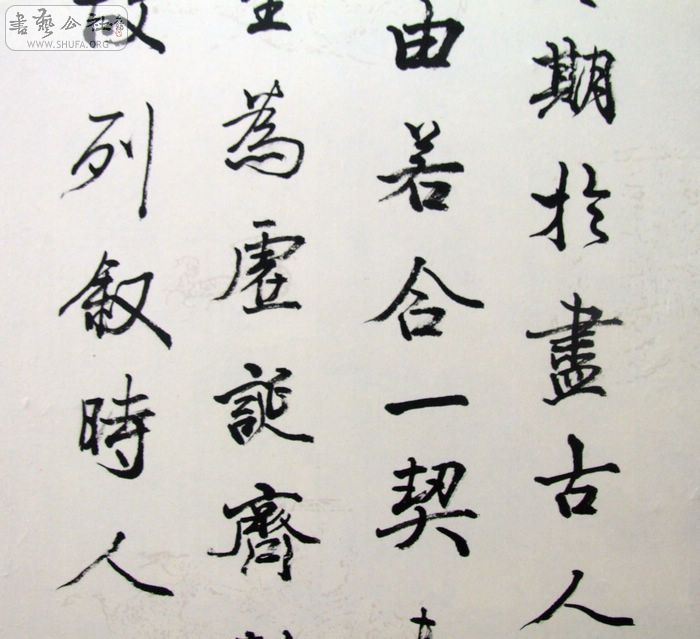 期於盡古人
由若合一契
為虛誕齊
列叙時人
書藝公社
WWW.SHUFA.ORG